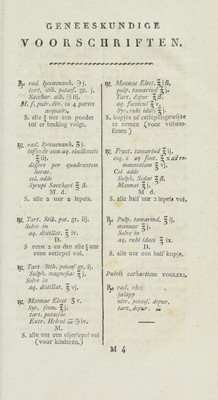 GENEESKUNDIGE
VOORSCHRIFTEN.
℞ rad. Ipecacuanh. ℈j.
tart. stib. potass. gr. j.
Sacchar. alb. ℥iij.
M. f. pulv. div. in 4 partes
aequales.
S. alle ½ uur een poeder
tot er braking volgt.
℞ rad. Ipecacuanh. ℥j
infunde cum aq. ebullientis
℥iij
digere per quadrantem
horae.
col. adde
Syrupi Sacchari ℥ß.
M. d.
S. alle 2 uur 2 lepels.
℞ Tart. Stib. pot. gr. iij.
Solve in
aq. distillat. ℥iv.
D.
S eene à en den alle ½ uur
eene eetlepel vol.
℞ Tart. Stib. potass gr. ij.
Sulph. magnesiae ℥j.
Solve in
aq. distillat. ℥vj.
℞ Mannae Elect ℥v.
Syr. senn. ℥j.
tart. potassae
Extr. Helenii ana ℈iv.
M.
S. alle uur een eijerlepel vol
(voor kinderen.)
℞ Mannae Elect. ℥jß,
pulp. tamarind ℥j.
Tart. depur ℥ß.
aq. foeniculi ℥v.
Syr. rubi idaei ℥j.
S. kopjes of eetlepelsgewijze
te nemen (voor volwas-
senen)
℞ Fruct. tamarind ℥ij.
coq. c aq font. ℥x. ad re-
manentiam ℥vj.
Col adde
Sulph. Sodae ℥ß.
Mannae ℥j.
M. d.
S. alle half uur 2 lepels vol.
℞ Pulp. tamarind ℥ij.
mannae ℥j.
Solve in
aq. rubi idaei ℥ix.
D.
S. alle uur een half kopje.
Pulvis catharticus VOGLERI.
℞ rad. rhei
jalapp
nitr. potass. depur.
tart. depur. ana
M 4